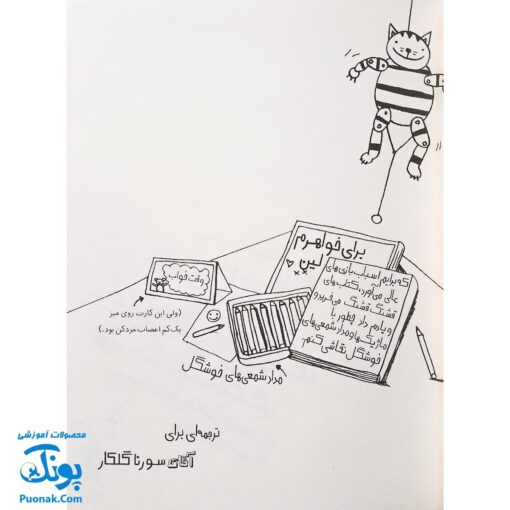 برای خواهرم
لین
که برایم اسباب‌بازی‌های
عالی می‌آورد، کتاب‌های
قشنگ قشنگ می‌خرد و
و یادم داد چطور با
ماژیک‌ها و مدادشمعی‌های
خوشگل نقاشی کنم.
وقت خواب
(ولی این کارت روی میز
یک کم اعصاب خردکن بود.)
مدادشمعی‌های خوشگل
ترجمه‌ای برای
آقای سورنا گلکار
محصولات آموزشی
پونک
Puonak.Com